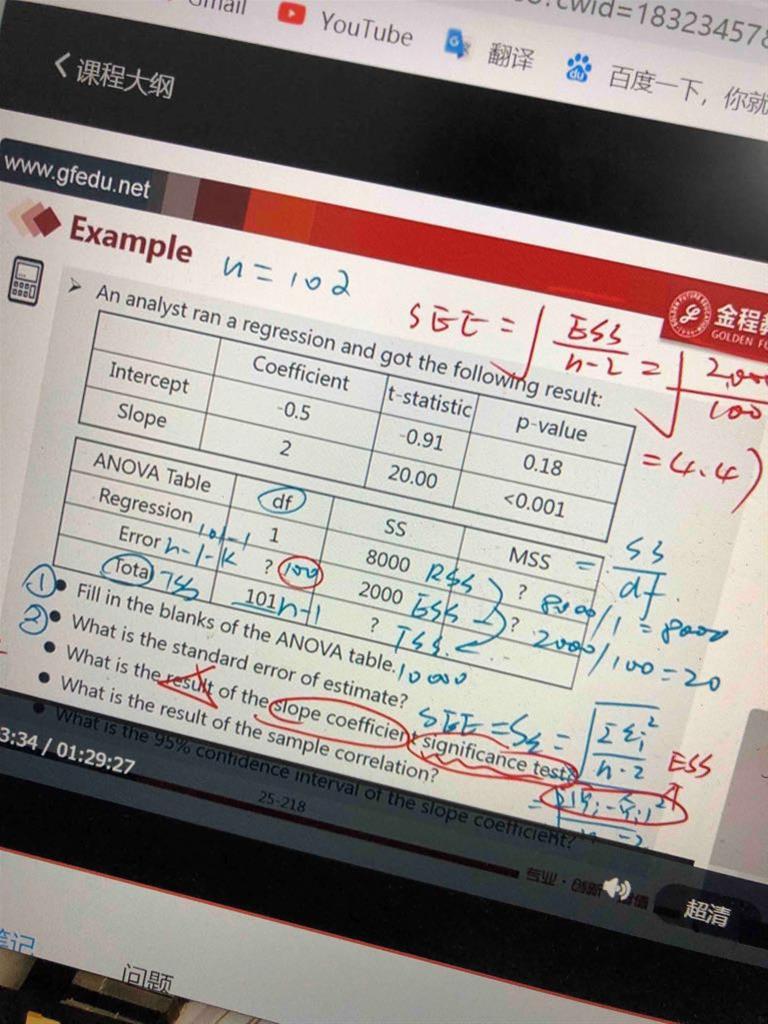 .cwid=183234578
Gmail
YouTube
翻译
百度一下，你就
课程大纲
www.gfedu.net
Example
n = 102
金程教
GOLDEN FU
An analyst ran a regression and got the following result:
SEE = √ ESS / n-2 = √ 2,000 / 100
= 4.47
Coefficient t-statistic p-value
Intercept -0.5 -0.91 0.18
Slope 2 20.00 <0.001
ANOVA Table df SS MSS = SS / df
Regression 1 8000 RSS ? 8000/1 = 8000
Error n-1-k ? 100 2000 ESS ? 2000/100 = 20
Total TSS 101 n-1 ? TSS
10000
① Fill in the blanks of the ANOVA table.
② What is the standard error of estimate?
What is the result of the slope coefficient significance test?
What is the result of the sample correlation?
What is the 95% confidence interval of the slope coefficient?
n-2 ESS
3:34 / 01:29:27
25-218
专业·创新
超清
笔记
问题